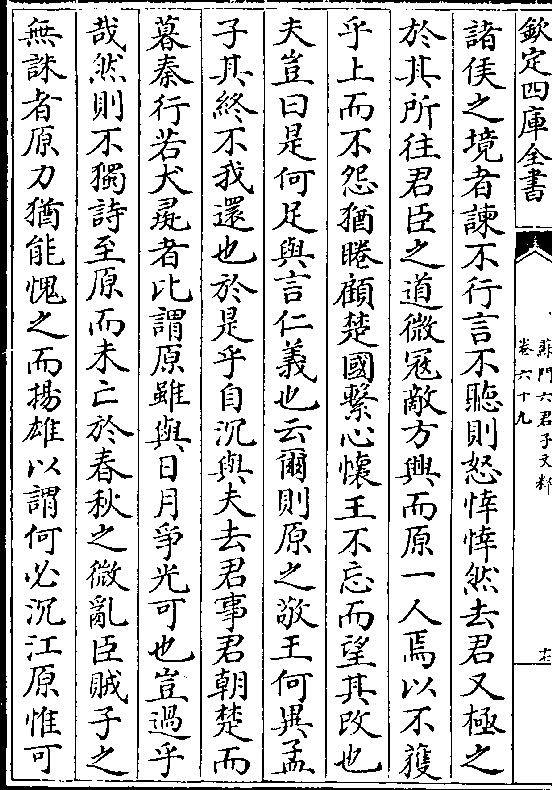 欽定四庫全書
蘇門六君子文粹
卷六十九
諸侯之境者諫不行言不聽則怒悻悻然去君又極之
於其所往君臣之道微冦敵方興而原一人焉以不獲
乎上而不怨猶睠顧楚國繫心懷王不忘而望其改也
夫豈曰是何足與言仁義也云爾則原之敬王何異孟
子其終不我還也於是乎自沉與夫去君事君朝楚而
暮秦行若犬彘者比謂原雖與日月爭光可也豈過乎
哉然則不獨詩至原而未亡於春秋之微亂臣賊子之
無誅者原力猶能愧之而揚雄以謂何必沉江原惟可